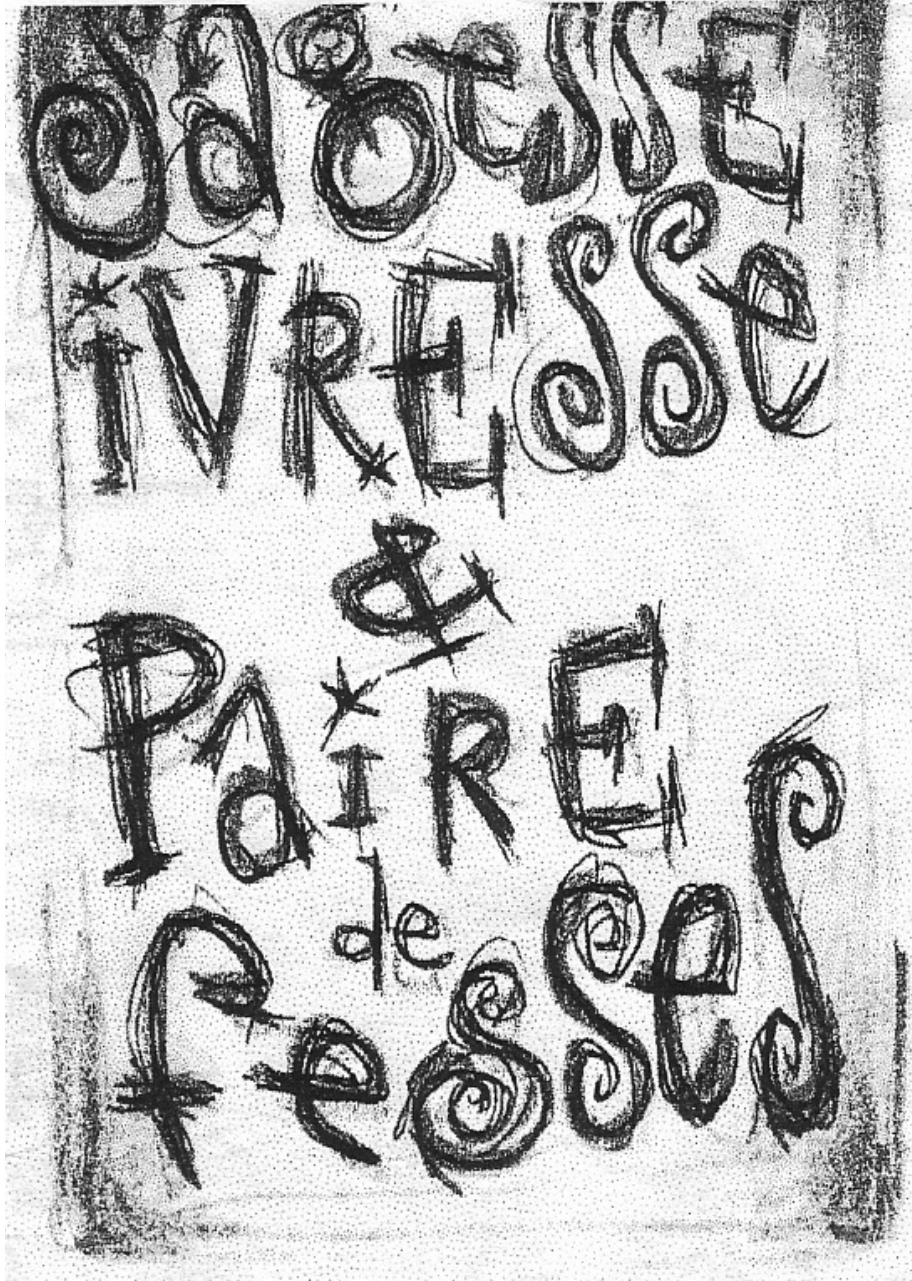 SagesSE
iVRESSe
&
PaiRE
de
fesseS